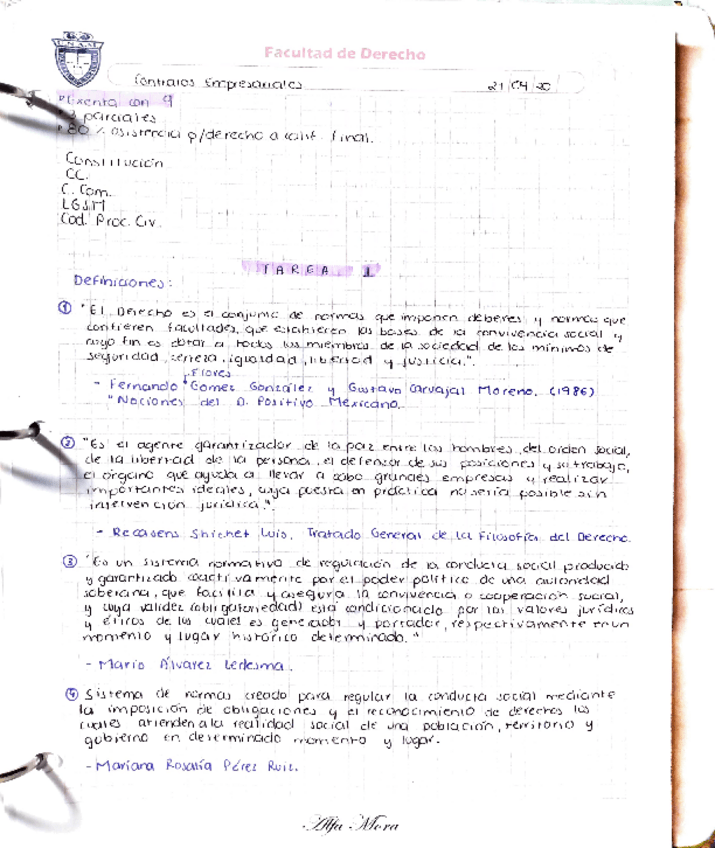 Facultad de Derecho
Contratos Empresariales 21/04/20
Exenta con 9
3 parciales
80% asistencia p/derecho a calif. final.
Constitución
CC.
C. Com.
LGSM
Cod. Proc. Civ.
TAREA 1
Definiciones:
1 "El Derecho es el conjunto de normas que imponen deberes y normas que
confieren facultades, que establecen las bases de la convivencia social y
cuyo fin es dotar a todos los miembros de la sociedad de los mínimos de
seguridad, certeza, igualdad, libertad y justicia.".
Flores
- Fernando Gomez González y Gustavo Carvajal Moreno. (1986)
"Nociones del D. Positivo Mexicano.
2 "Es el agente garantizador de la paz entre los hombres, del orden social,
de la libertad de la persona, el defensor de sus posiciones y su trabajo,
el órgano que ayuda a llevar a cabo grandes empresas y realizar
importantes ideales, cuya puesta en práctica no seria posible sin
intervención jurídica.".
- Recasens Shichet Luis, Tratado General de la Filosofía del Derecho.
3 "Es un sistema normativo de regulación de la conducta social producido
y garantizado coactivamente por el poder político de una autoridad
soberana, que facilita y asegura la convivencia o cooperación social,
y cuya validez (obligatoriedad) está condicionado por los valores jurídicos
y éticos de los cuales es generador y portador, respectivamente en un
momento y lugar histórico determinado."
- Mario Álvarez Ledesma.
4 Sistema de normas creado para regular la conducta social mediante
la imposición de obligaciones y el reconocimiento de derechos los
cuales atienden a la realidad social de una población, territorio y
gobierno en determinado momento y lugar.
- Mariana Rosalía Pérez Ruiz.
Alfa Mora